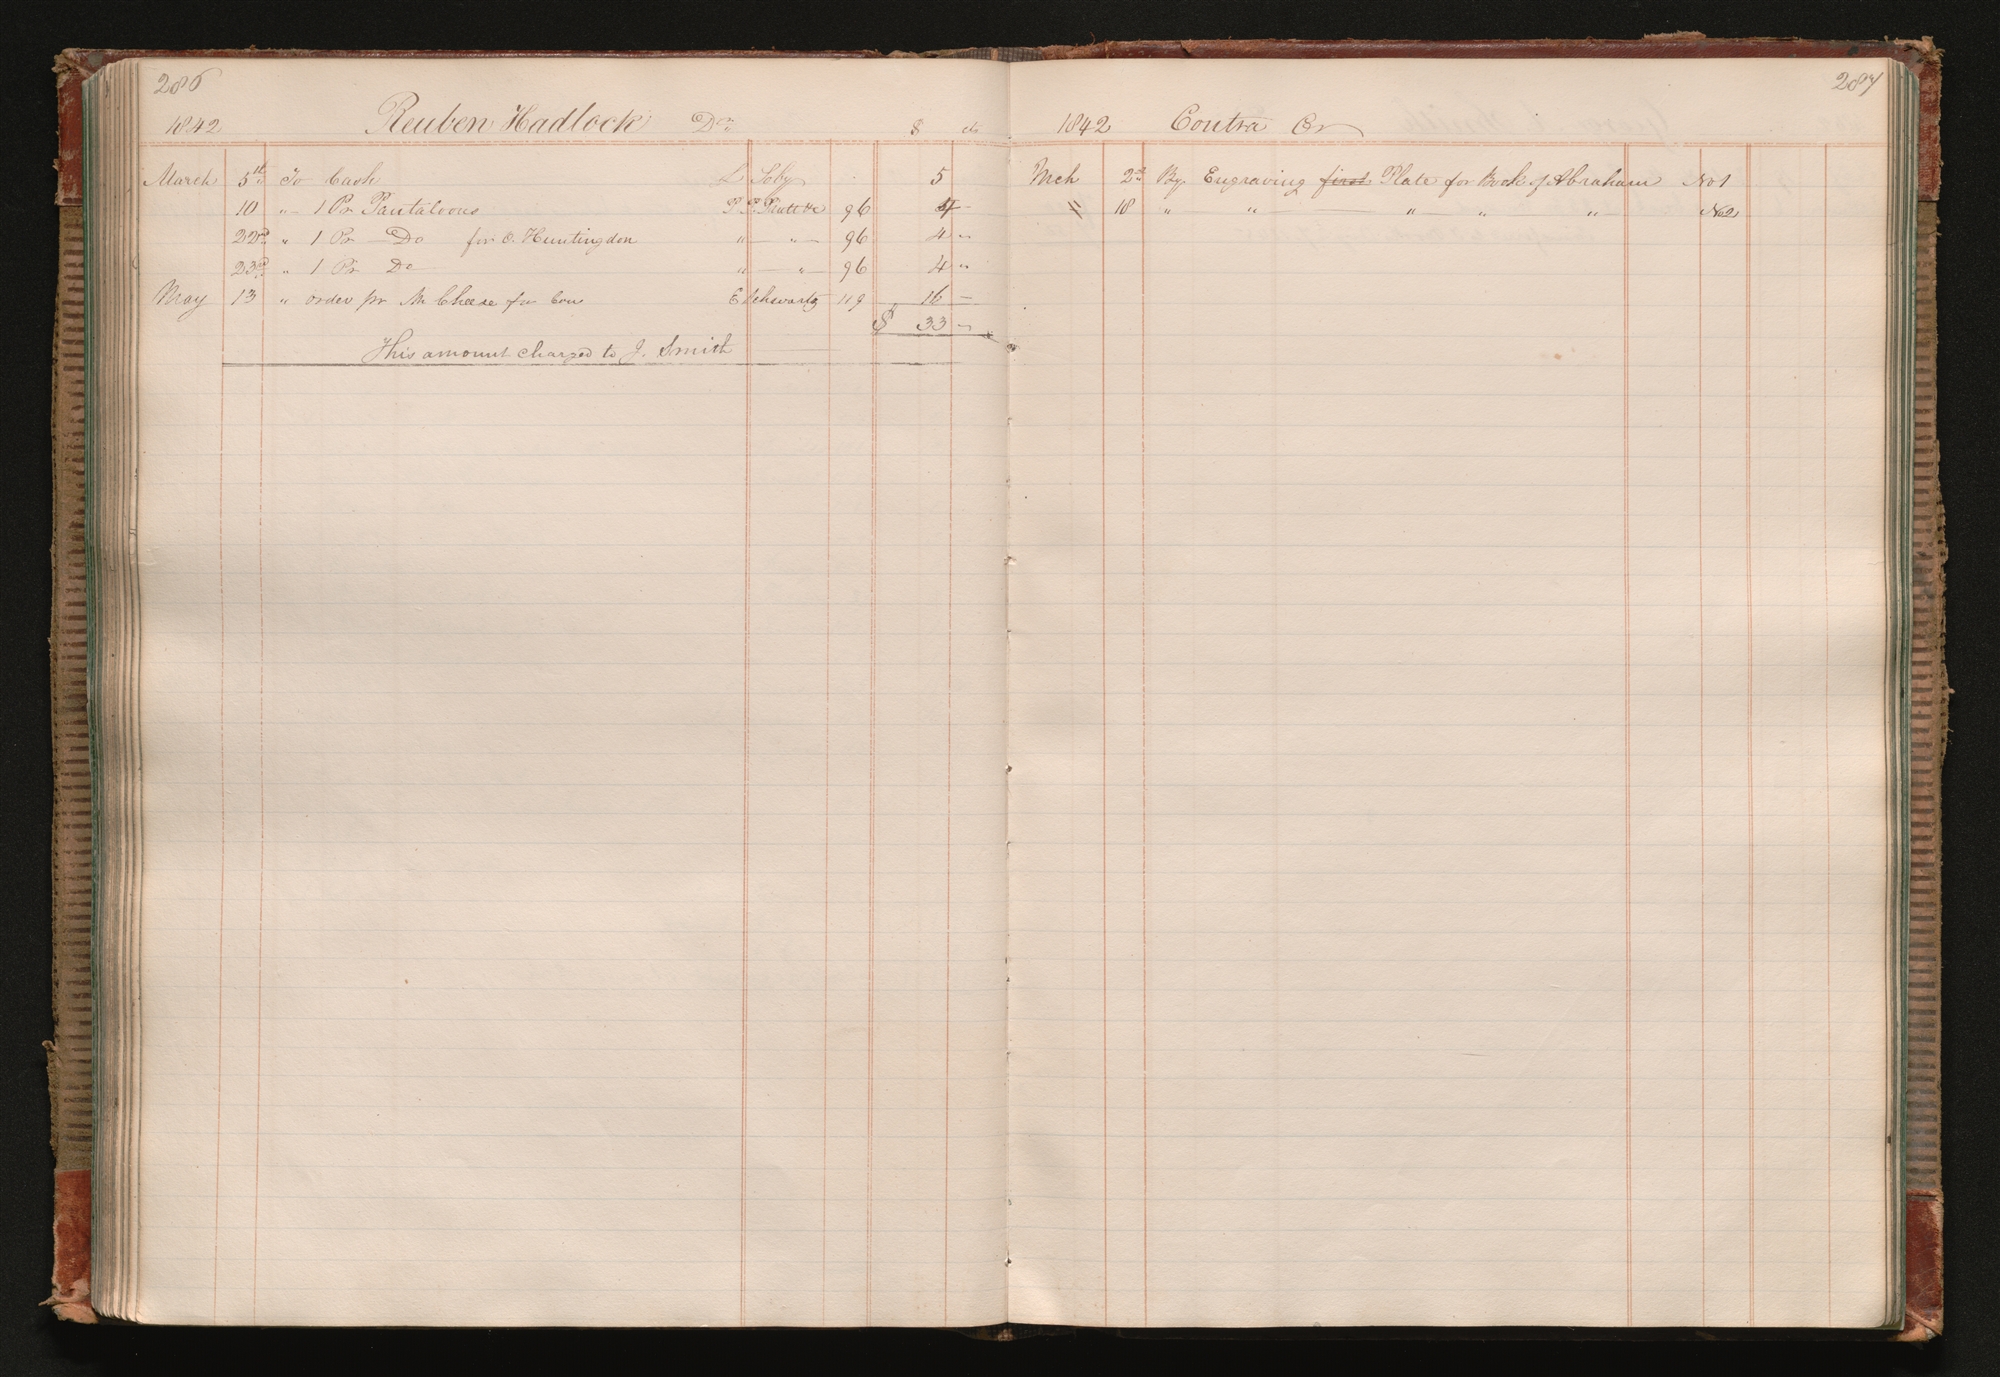 286
1842 Reuben Hadlock Dr. $ cts
March 5th To Cash L Soby 5
10 " 1 Pr Pantaloons P. P. Pratt &c 96 4 —
22d " 1 Pr — Do for O. Huntingdon " — " — 96 4 "
23d " 1 Pr Do " — " — 96 4 "
May 13 " order pr M Cheese for Cow E Schwartz 119 16 —
$ 33 —
This amount charged to J. Smith
287
1842 Contra Cr
Mch 2d By Engraving first Plate for Book of Abraham No 1
" 18 " — " — " — " — " — No 2